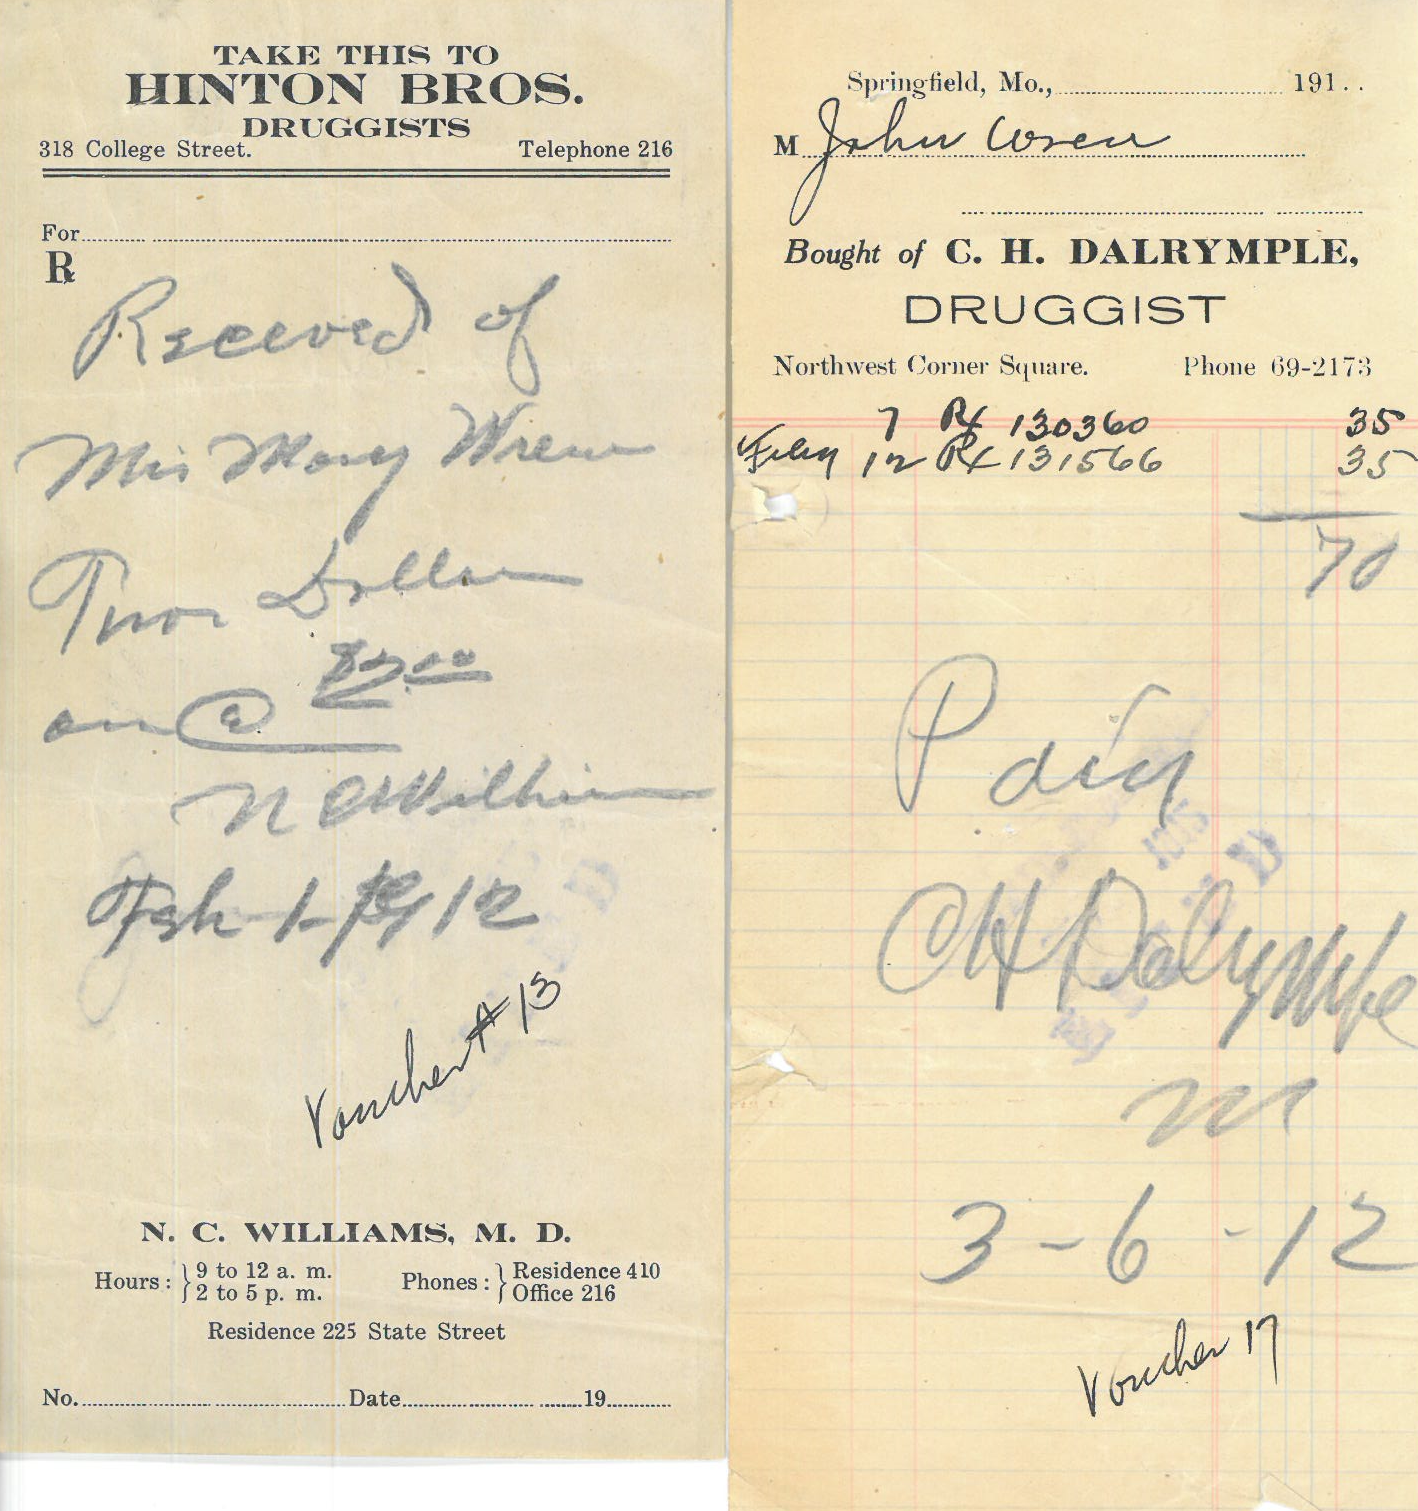 TAKE THIS TO
HINTON BROS.
DRUGGISTS
318 College Street. Telephone 216
For
℞
Received of
Mis Mary Wren
Two Dollars
$2.00
on @
N C Williams
Feb 1 - 1912
Voucher # 13
N. C. WILLIAMS, M. D.
Hours: 9 to 12 a. m. 2 to 5 p. m. Phones: Residence 410 Office 216
Residence 225 State Street
No. Date 19
Springfield, Mo., 191..
M John Wren
Bought of C. H. DALRYMPLE,
DRUGGIST
Northwest Corner Square. Phone 69-2173
7 Rx 130360 35
Feby 12 Rx 131566 35
70
Paid
CH Dalrymple
m
3-6-12
Voucher 17